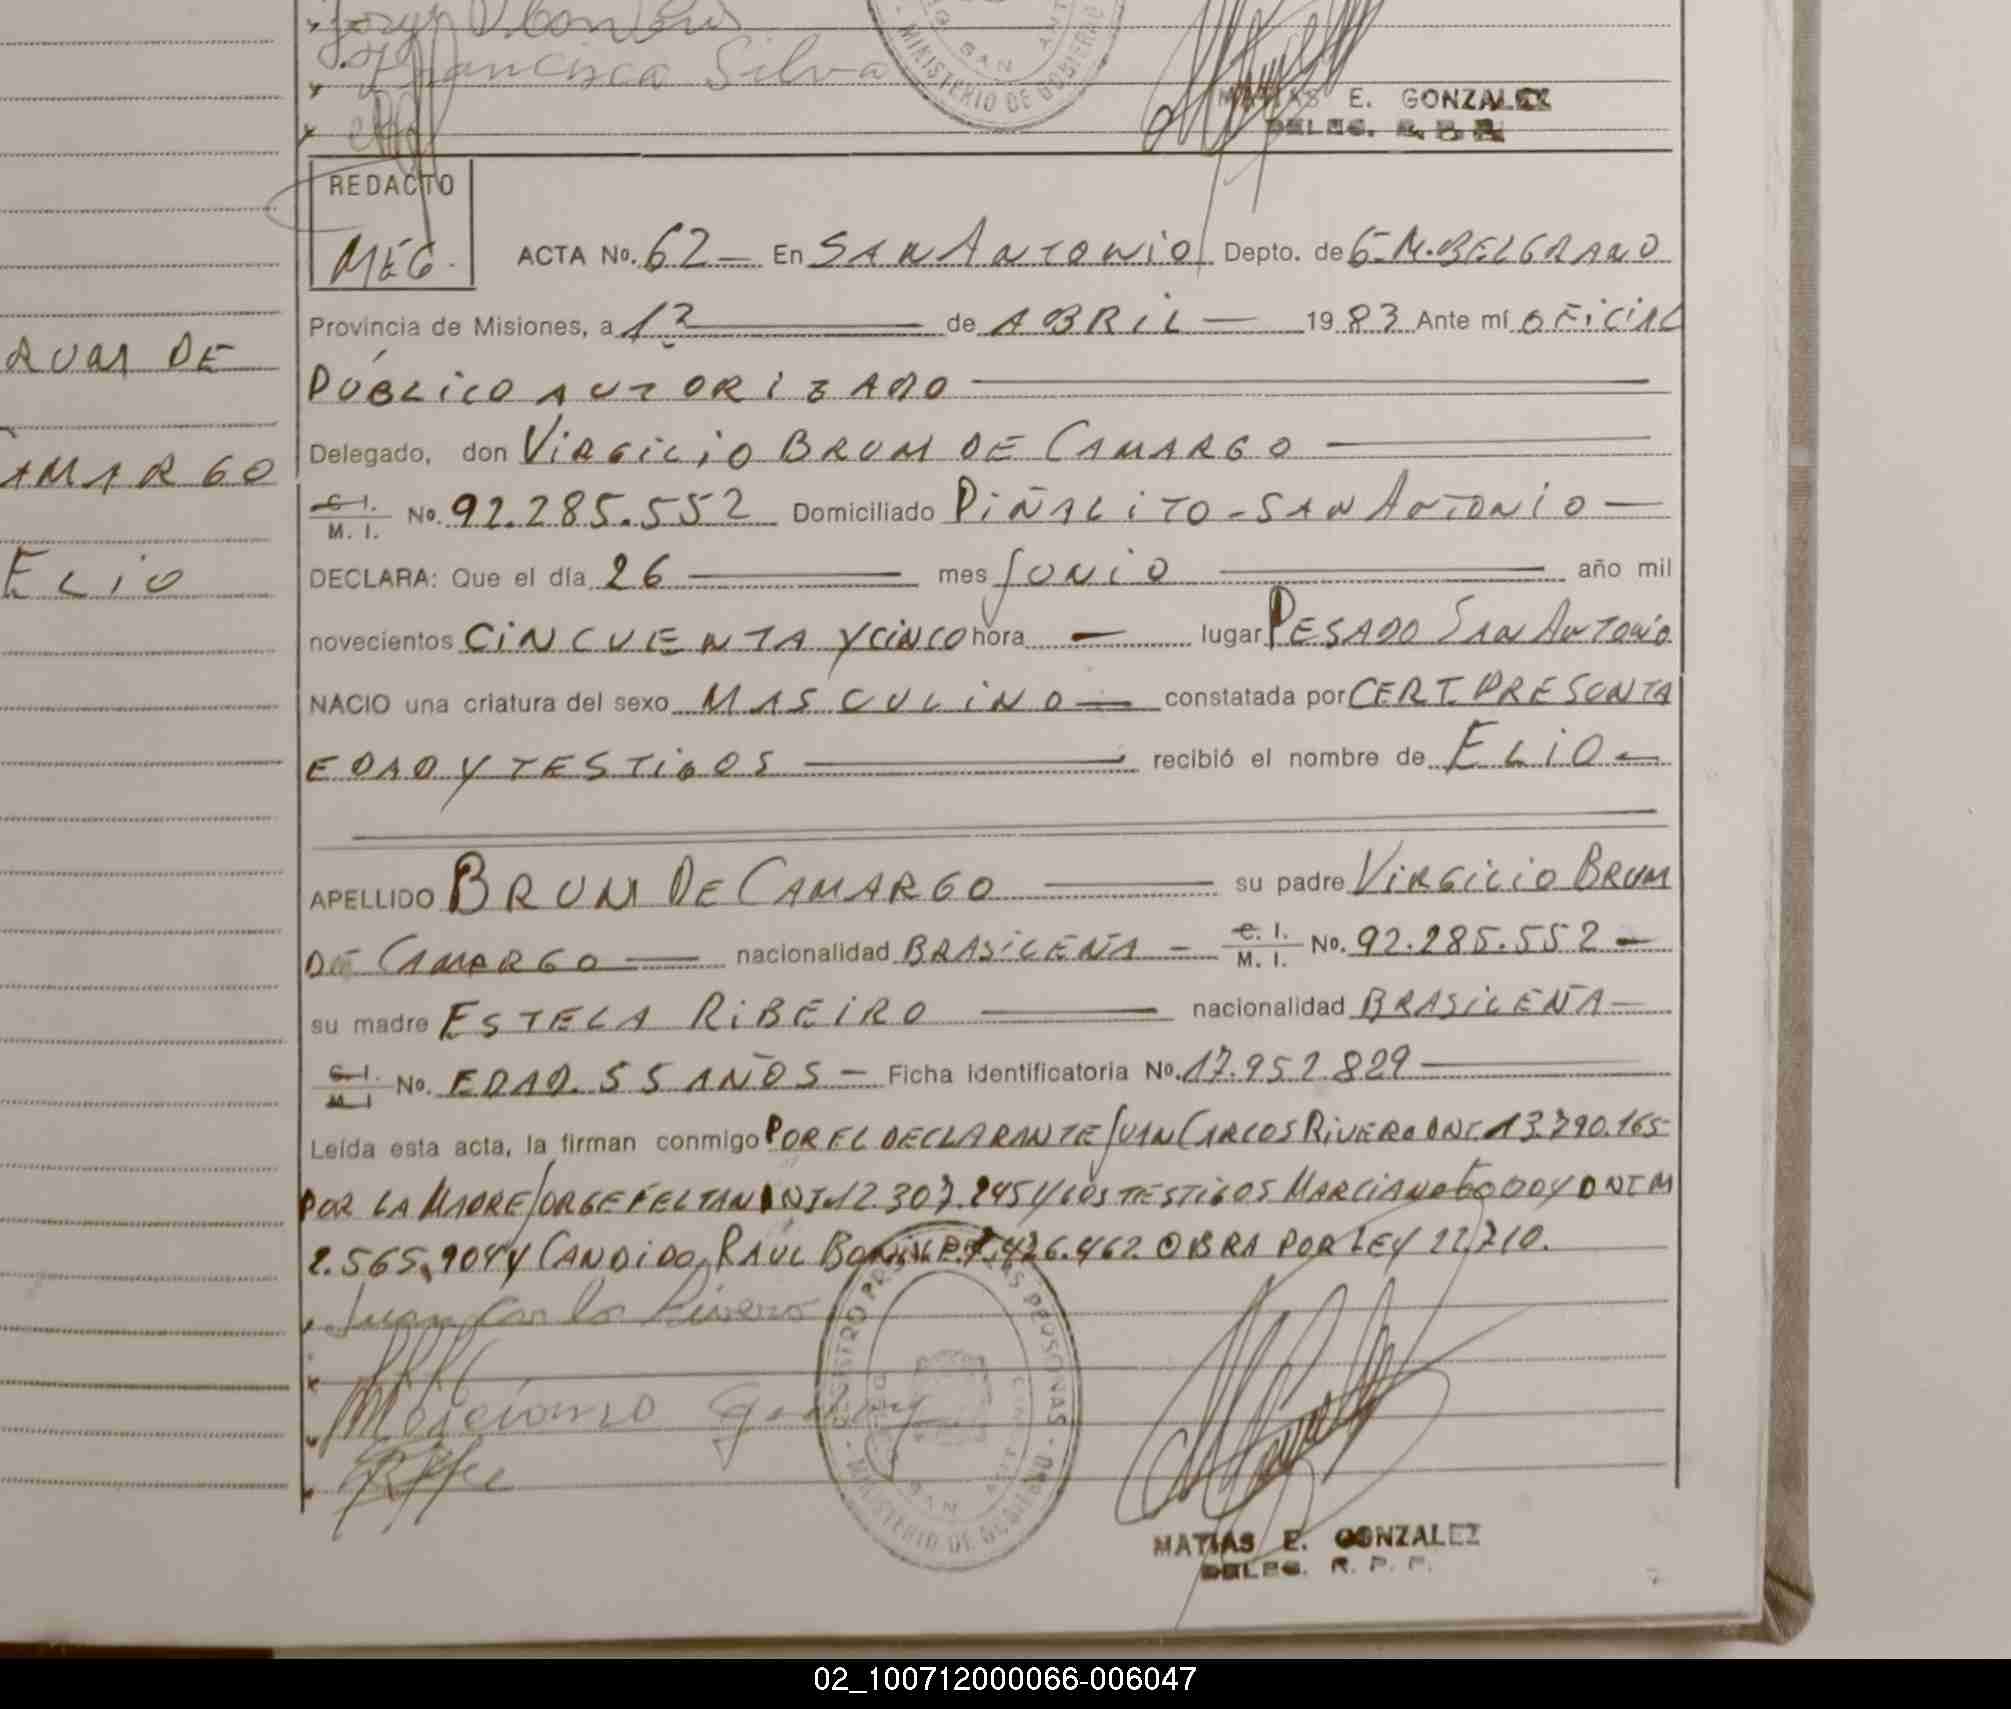 Francisca Silva
MINISTERIO DE GOBIERNO
SAN ANT
MATIAS E. GONZALEZ
DELEG. R. P. P.
REDACTO
MEG.
ACTA No. 62 — En SAN ANTONIO Depto. de G. M. BELGRANO
Provincia de Misiones, a 12 de ABRIL — 1983 Ante mí OFICIAL
PÚBLICO AUTORIZADO
RUM DE
Delegado, don VIRGILIO BRUM DE CAMARGO
AMARGO
C. I. / M. I. No. 92.285.552 Domiciliado PIÑALITO - SAN ANTONIO —
DECLARA: Que el día 26 mes JUNIO año mil
ELIO
novecientos CINCUENTA Y CINCO hora — lugar PESADO SAN ANTONIO
NACIO una criatura del sexo MASCULINO — constatada por CERT. PRESUNTA
EDAD Y TESTIGOS recibió el nombre de ELIO —
APELLIDO BRUM DE CAMARGO su padre VIRGILIO BRUM
DE CAMARGO — nacionalidad BRASILEÑA — C. I. / M. I. No. 92.285.552 —
su madre ESTELA RIBEIRO nacionalidad BRASILEÑA —
C. I. / M. I. No. EDAD. 55 AÑOS — Ficha identificatoria No. 17.952.829
Leída esta acta, la firman conmigo POR EL DECLARANTE JUAN CARLOS RIVERO DNI. 13.790.165
POR LA MADRE JORGE FELTAN DNI 12.307.245 Y LOS TESTIGOS MARCIANO GODOY DNI M
2.565.904 Y CANDIDO RAUL 7.426.462. OBRA POR LEY 22.710.
Juan Carlos Rivero
Marciano Godoy
REGISTRO PROV. DE LAS PERSONAS
MINISTERIO DE GOBIERNO
SAN ANT
MATIAS E. GONZALEZ
DELEG. R. P. P.
02_100712000066-006047